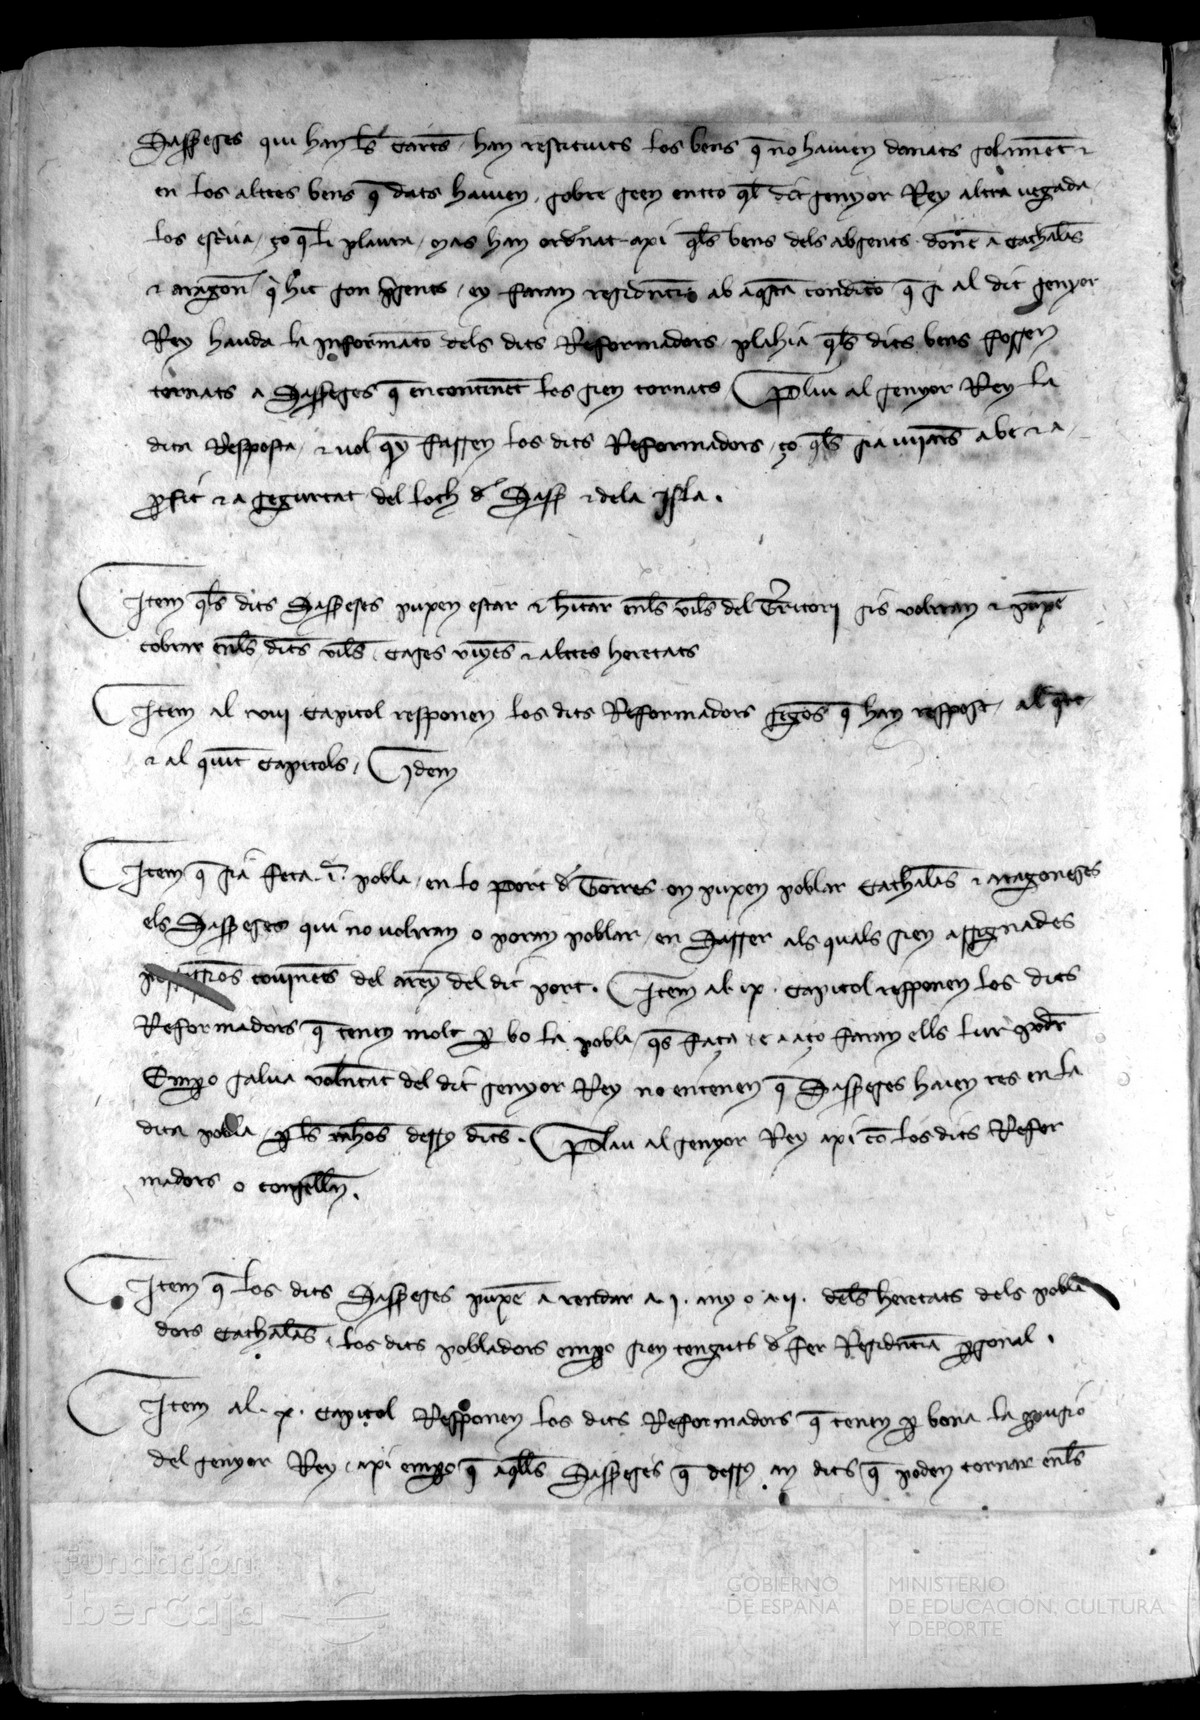 Sasseses qui han les cartes han restituits los bens q̄ no hauien donats solam̄ēt &
en los altres bens q̄ dats hauien, sobre seen entro q̄l dit senyor Rey altra vegada
los escriua, ço q̄ li plaura, mas han ordenat axi q̄ls bens dels absents donē a Cathalās
& aragon̄ q̄ hic son p̄sents, ey faran residēncia ab aq̄sta condicio q̄ si al dit senyor
Rey hauda la informacio dels dits Reformadors, plahia q̄ls dits bens fossen
tornats a Sasseses q̄ encontinēt los sien tornats Plau al senyor Rey la
dita Resposta, & vol q̄y fassen los dits Reformadors, ço q̄ls sia vijares a be & a
p̄fit & a seguretat del loch d Sasser & dela Isla.
Item q̄ls dits Sasseses puxen estar & hītar enls vils del Territori sis volrran & puxē
cobrar enls dits vils cases vinyes & altres heretats
Item al viii Capitol responen los dits Reformadors segōs q̄ han respost, al qrt
& al quīt Capitols, Idem
Item q̄ sia feta .i. pobla, en lo port d Torres on puxen poblar Cathalās & aragoneses
els Sasseses qui no volrran o poran poblar en Sasser als quals sien assignades
possessiōs couinēts del areny del dit port. Item al ix. Capitol responen los dits
Reformadors q̄ tenen molt p̄ bo la pobla q̄s faça, e a aço faran ells lur poder
Emp̄o salua volūtat del dit senyor Rey no entenen q̄ Sasseses haien res en la
dita pobla, p̄ les rahōs dessus dits. Plau al senyor Rey axi cō los dits Refor
madors o consellen.
Item q̄ los dits Sasseses puxē arrendar a .j. any o a .ij. dels heretats dels pobla
dors Cathalās, los dits pobladors emp̄o sien tenguts d fer Residēncia p̄sonal.
Item al .x. Capitol Responen los dits Reformadors q̄ tenen p̄ bona la p̄uisio
del senyor Rey, axi emp̄o q̄ aq̄lls Sasseses q̄ dessus an dits q̄ poden tornar enls
Fundación
iberCaja
GOBIERNO
DE ESPAÑA
MINISTERIO
DE EDUCACIÓN, CULTURA
Y DEPORTE